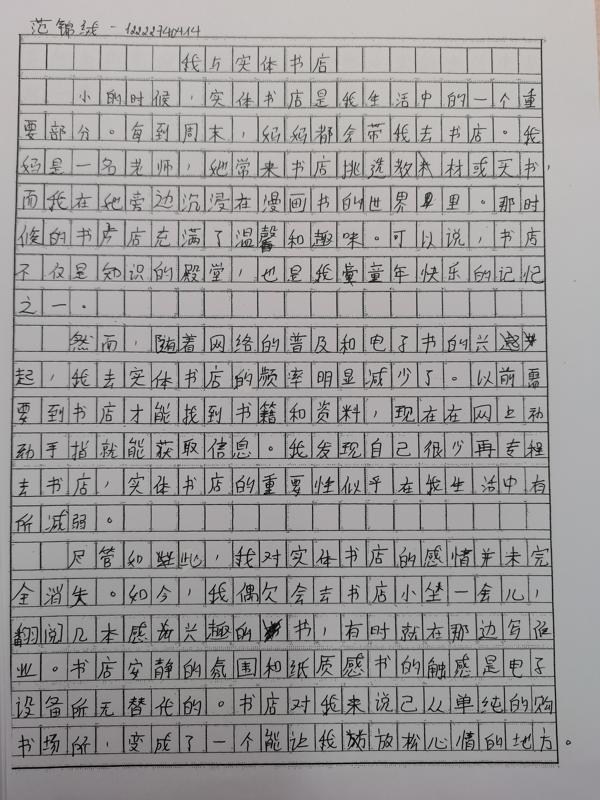 范锦绒 - 12222740414
我与实体书店
小的时候，实体书店是我生活中的一个重
要部分。每到周末，妈妈都会带我去书店。我
妈是一名老师，她常来书店挑选教材或天书，
而我在她旁边沉浸在漫画书的世界里。那时
候的书店充满了温馨和趣味。可以说，书店
不仅是知识的殿堂，也是我童年快乐的记忆
之一。
然而，随着网络的普及和电子书的兴
起，我去实体书店的频率明显减少了。以前需
要到书店才能找到书籍和资料，现在在网上动
动手指就能获取信息。我发现自己很少再专程
去书店，实体书店的重要性似乎在我生活中有
所减弱。
尽管如此，我对实体书店的感情并未完
全消失。如今，我偶欠会去书店小坐一会儿，
翻阅几本感兴趣的书，有时就在那边写作
业。书店安静的氛围和纸质感书的触感是电子
设备所无替代的。书店对我来说己从单纯的购
书场所，变成了一个能让我放松心情的地方。